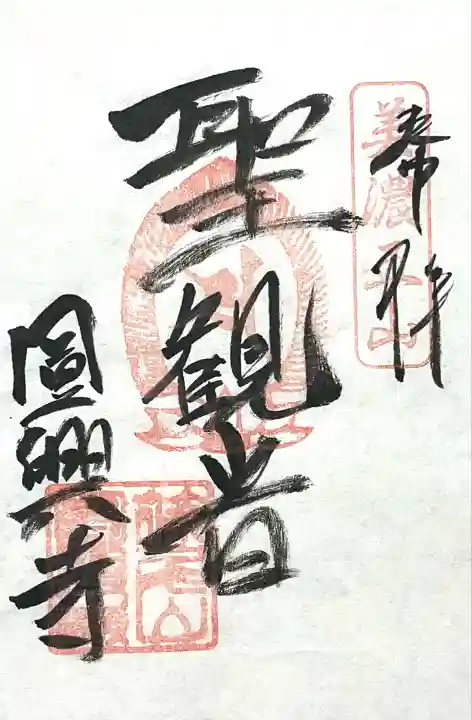 奉拝
美濃
聖観音
圓興寺